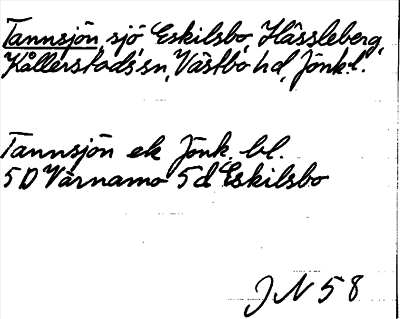 Tannsjön, sjö Eskilsbo, Hässleberg,
Kållerstads sn, Västbo hd, Jönk.l.
Tannsjön ek Jönk. bl.
5D Värnamo 5d Eskilsbo
JN 58